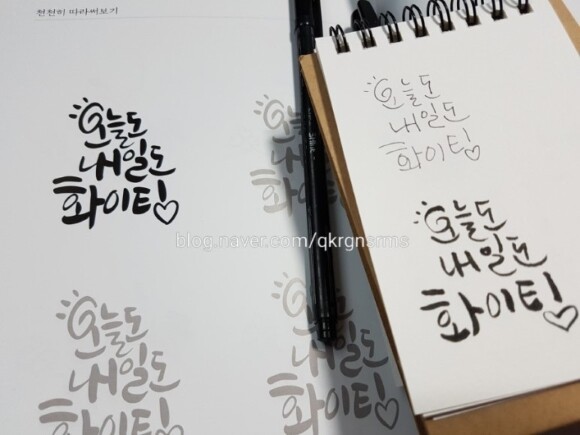 천천히 따라써보기
오늘도
내일도
화이팅
오늘도
내일도
화이팅
오늘도
내일도
화이팅
오늘도
내일도
화이팅
오늘도
내일도
화이팅
오늘도
내일도
화이팅
blog.naver.com/qkrgnsrms